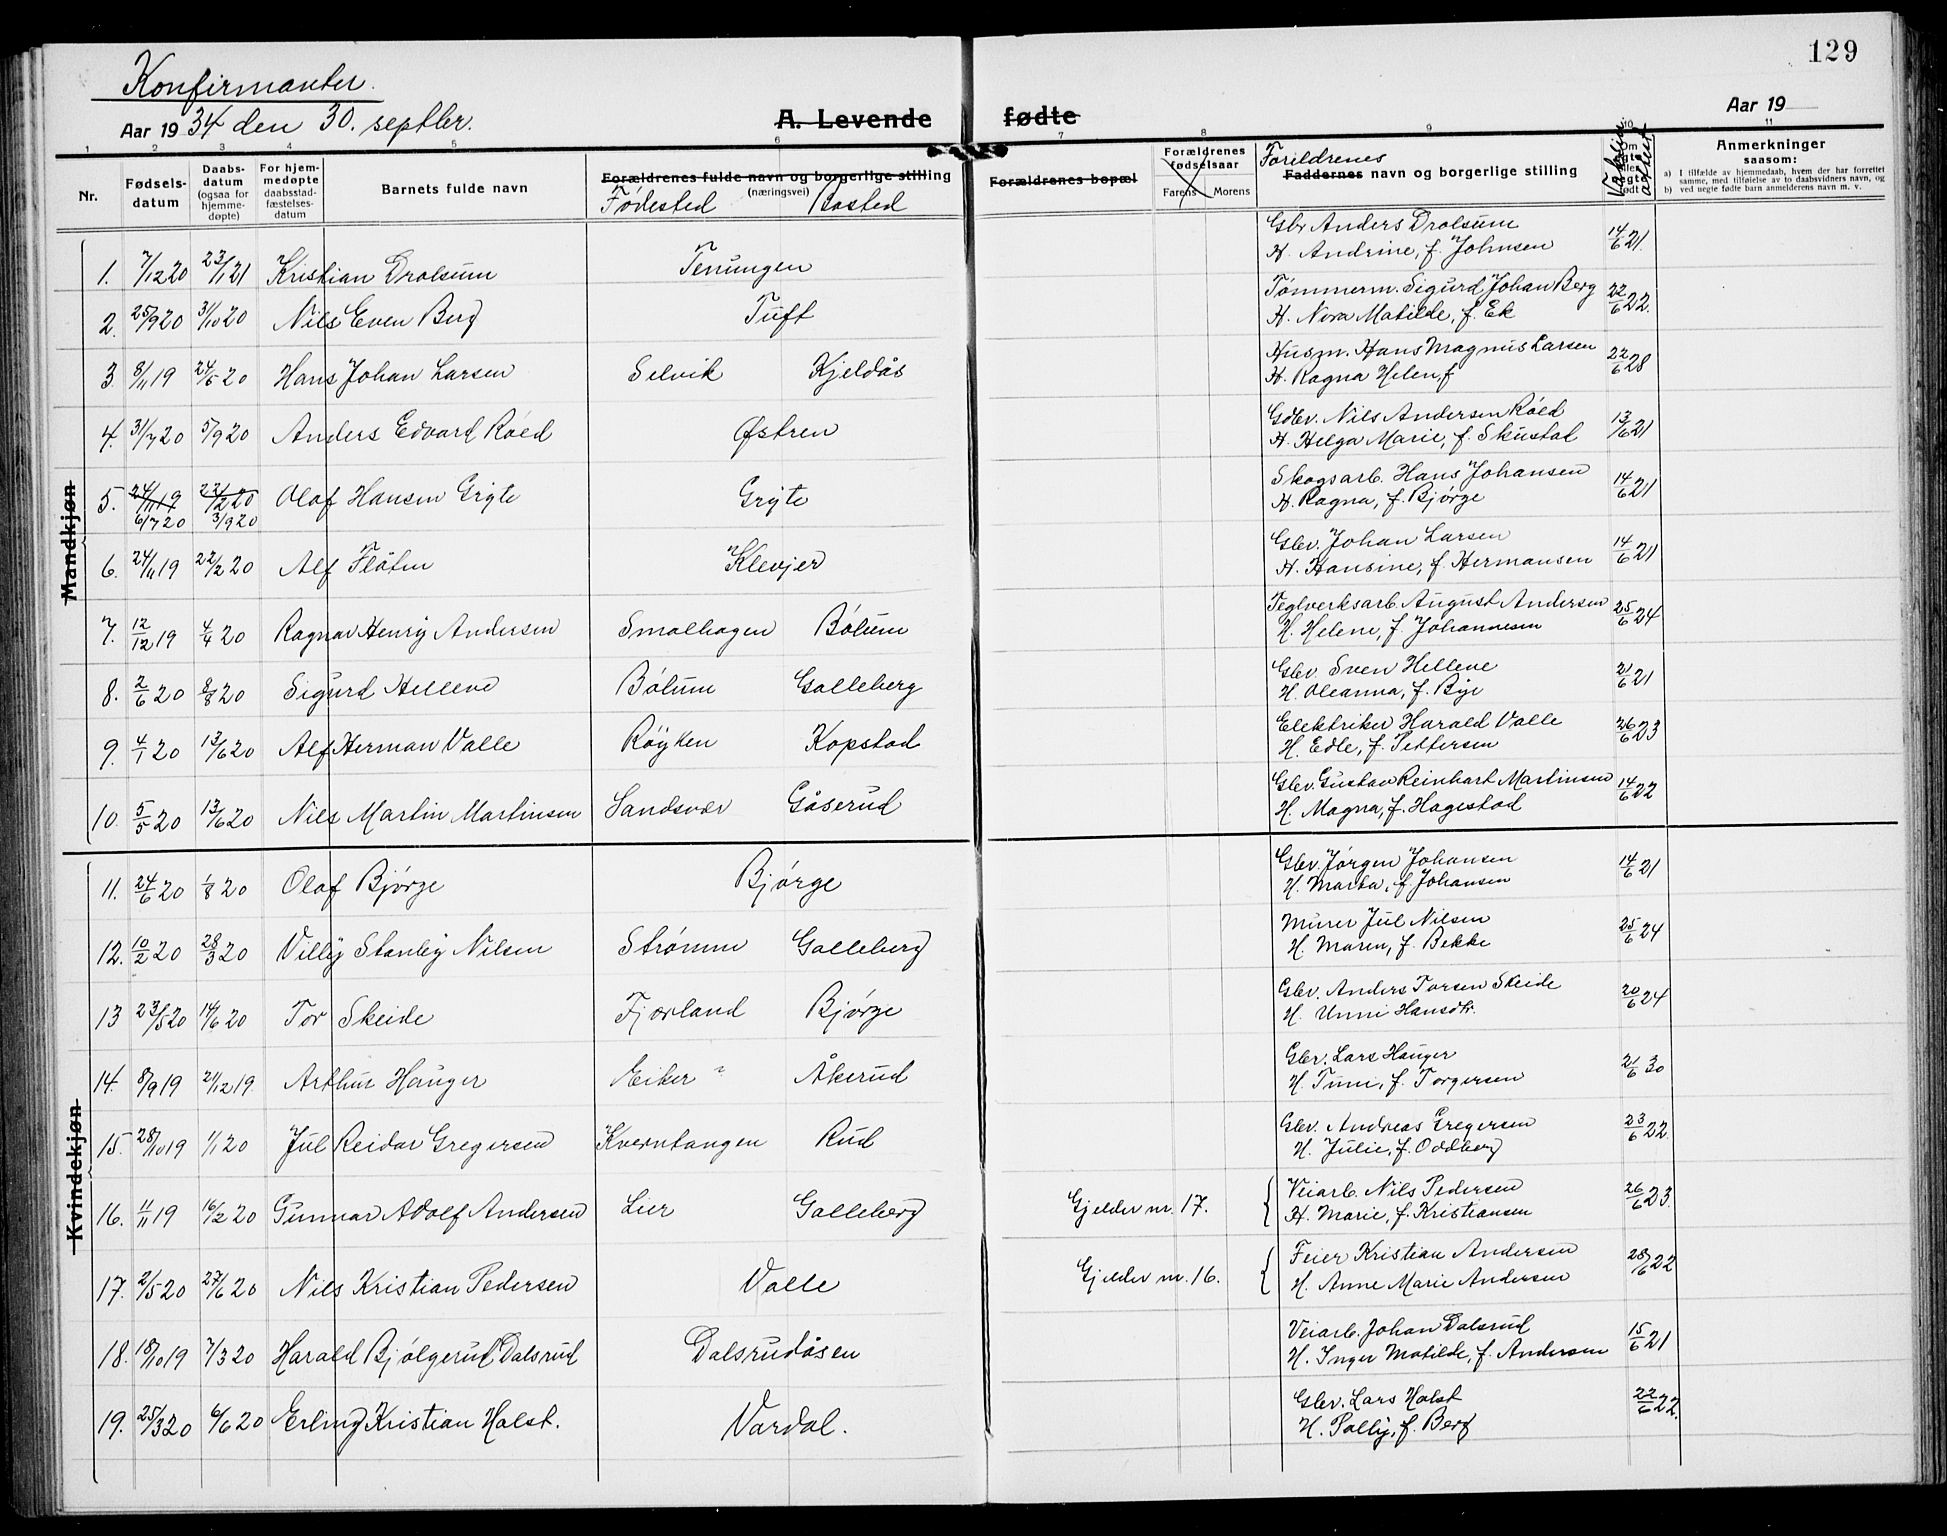 129
Konfirmanter.
Aar 1934 den 30. septbr.
A. Levende fødte
Aar 19
1 2 3 4 5 6 7 8 9 10 11
Nr.
Fødsels-
datum
Daabs-
datum
(ogsaa for
hjemme-
døpte)
For hjem-
medøpte
daabsstad-
fæstelses-
datum
Barnets fulde navn
Forældrenes fulde navn og borgerlige stilling
(næringsvei)
Fødested Bosted
Forældrenes bopæl
Forældrenes
fødselsaar
Farens Morens
Foreldrenes
Faddernes navn og borgerlige stilling
Anmerkninger
saasom:
a) I tilfælde av hjemmedaab, hvem der har forrettet
samme, med tilføielse av to daabsvidners navn, og
b) ved uegte fødte barn anmelderens navn m. v.
Mandkjøn
1. 7/12 20 23/1 21 Kristian Drolsum Tenungen Gbr Anders Drolsum
H. Andrine, f. Johnsen 14/6 21.
2. 25/9 20 31/10 20 Nils Even Berg Tuft Tømmerm. Sigurd Johan Berg
H. Nora Matilde, f. Ek 22/6 22.
3. 8/11 19 24/5 20 Hans Johan Larsen Selvik Kjeldås Husm. Hans Magnus Larsen
H. Ragna Helen, f 22/6 28
4. 31/7 20 5/9 20 Anders Edvard Røed Østren Gdbr. Nils Andersen Røed
H. Helga Marie, f. Skustad 13/6 21
5. 24/11 19 22/2 20 Olaf Hansen Gryte Gryte Skogsarb. Hans Johansen
6/7 20 3/9 20 H. Ragna, f. Bjørge 14/6 21
6. 24/11 19 22/2 20 Alf Flåten Klevjer Gbr. Johan Larsen
H. Hansine, f. Hermansen 14/6 21
7. 12/12 19 4/4 20 Ragnar Henry Andersen Smalhagen Bølum Teglverksarb. August Andersen
H. Helene, f. Johannesen 25/6 24
8. 2/6 20 8/8 20 Sigurd Hellene Bølum Galleberg Gbr. Sven Hellene
H. Oleanna, f. Bye 21/6 21
9. 4/1 20 13/6 20 Alf Herman Valle Røyken Kopstad Elektriker Harald Valle
H. Edle, f. Pettersen 26/6 23
10. 5/5 20 13/6 20 Nils Martin Martinsen Sandsvær Gåserud Gbr. Gustav Reinhart Martinsen
H. Magna, f. Hagestad 14/6 22
Kvindekjøn
11. 24/6 20 1/8 20 Olaf Bjørge Bjørge Gbr. Jørgen Johansen
H. Marta, f. Johansen 14/6 21
12. 10/2 20 28/3 20 Villy Stanley Nilsen Strømm Galleberg Murer Jul Nilsen
H. Maren, f. Bekke 25/6 24
13 23/5 20 14/6 20 Tor Skeide Fjærland Bjørge Gbr. Anders Torsen Skeide
H. Unni Hansdtr. 20/6 24
14. 8/9 19 21/12 19. Arthur Hauger Eiker ? Åkerud Gbr. Lars Hauger
H. Tuni, f. Torgersen 21/6 30
15. 28/10 19 1/1 20 Jul Reidar Gregersen Kverntangen Rud Gbr. Andreas Gregersen
H. Julie, f. Oddberg 23/6 22.
16. 11/11 19 16/2 20 Gunnar Adolf Andersen Lier Galleberg Gjelder nr. 17. { Veiarb. Nils Pedersen
H. Marie, f. Kristiansen 26/6 23.
17. 2/5 20 27/6 20 Nils Kristian Pedersen Valle Gjelder nr. 16. { Feier Kristian Andersen
H. Anne Marie Andersen 28/6 22
18. 18/10 19 7/3 20 Harald Bjølgerud Dalsrud Dalsrudåsen Veiarb. Johan Dalsrud
H. Inger Matilde, f. Andersen 15/6 21
19. 25/3 20 6/6 20 Erling Kristian Holst. Vardal. Gbr. Lars Holst
H. Pally, f. Berg 22/6 22.